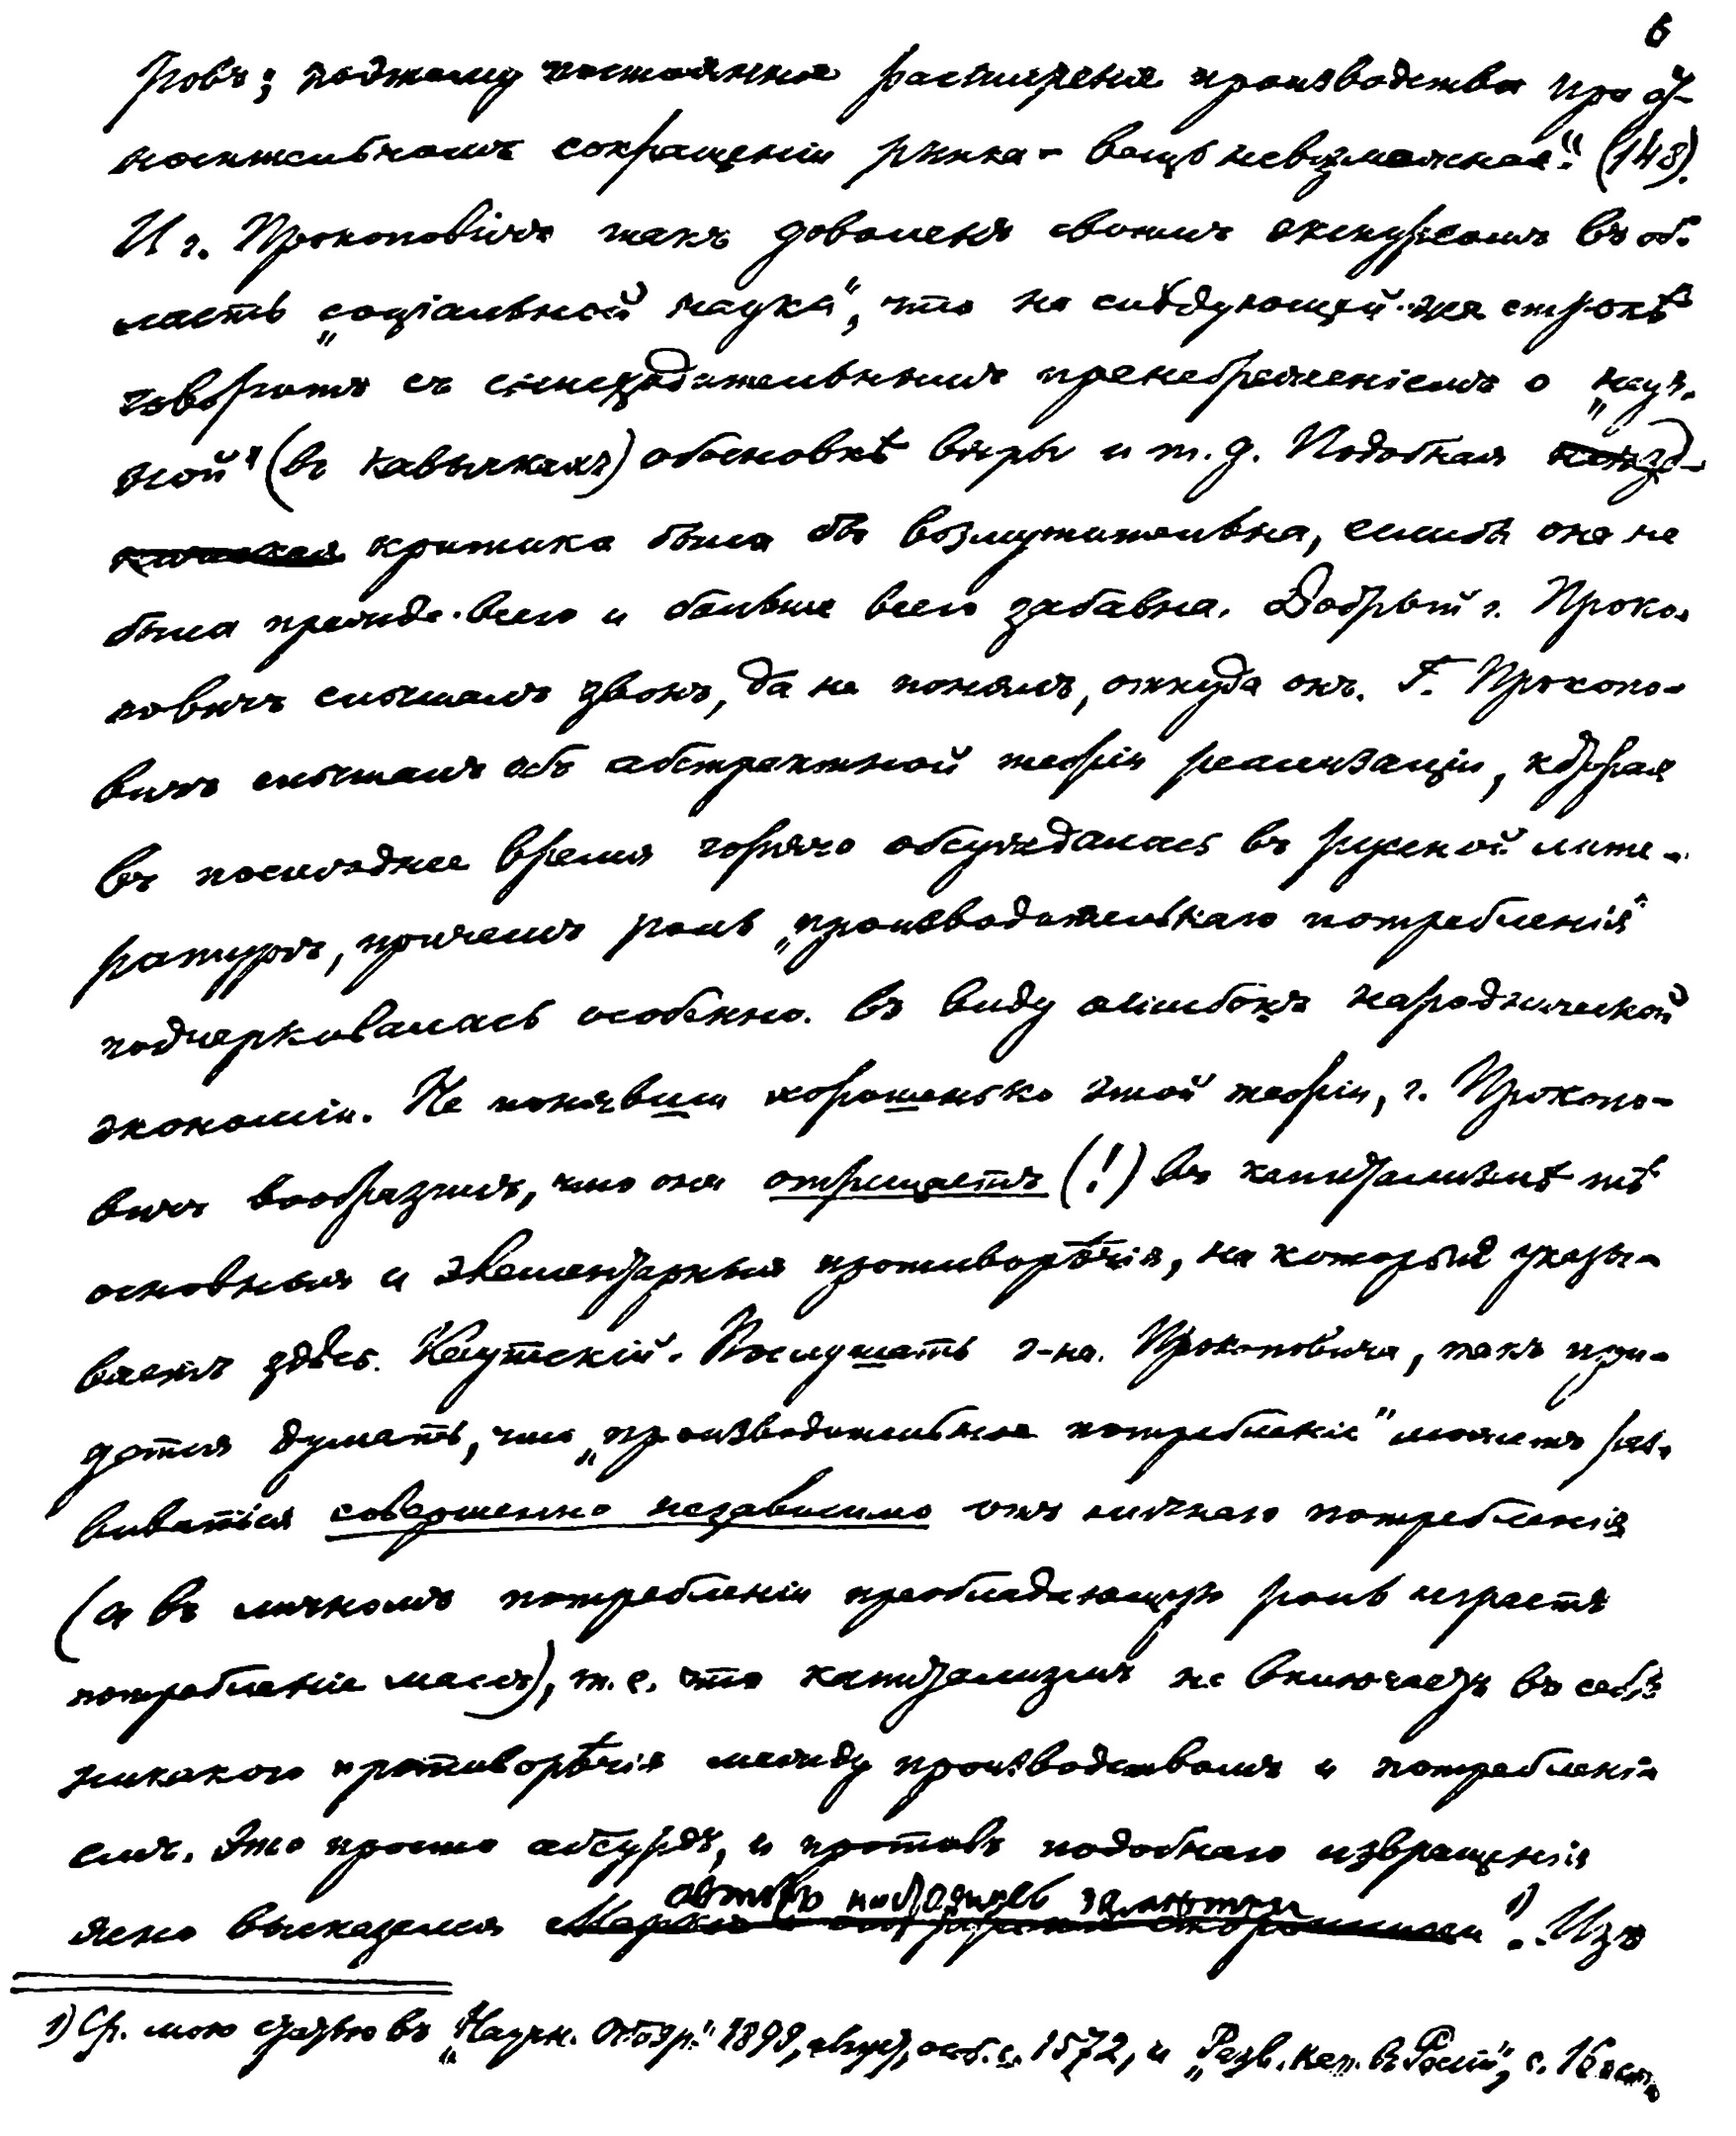 6
ровъ; поэтому постоянное расширеніе производства при от-
носительномъ сокращеніи рынка - вещь невозможная." (148).
И г. Прокоповичъ такъ доволенъ своимъ экскурсомъ въ об-
ласть „соціальной науки", что на слѣдующей же строкѣ
говоритъ съ снисходительнымъ пренебреженіемъ о „науч-
ной" (въ кавычкахъ) обосновкѣ вѣры и т. д. Подобная
критика была бы возмутительна, еслибы она не
была прежде всего и больше всего забавна. Добрый г. Проко-
повичъ слышалъ звонъ, да не понялъ, откуда онъ. Г. Прокопо-
вичъ слышалъ объ абстрактной теоріи реализаціи, которая
въ послѣднее время горячо обсуждалась въ русской лите-
ратурѣ, причемъ роль „производительнаго потребленія"
подчеркивалась особенно въ виду ошибокъ народнической
экономіи. Не понявши хорошенько этой теоріи, г. Прокопо-
вичъ вообразилъ, что она отрицаетъ (!) въ капитализмѣ тѣ
основныя и элементарныя противорѣчія, на которыя указы-
ваетъ здѣсь Каутскій. Послушать г-на Прокоповича, такъ при-
дется думать, что „производительное потребленіе" можетъ раз-
виваться совершенно независимо отъ личнаго потребленія
(а въ личномъ потребленіи преобладающую роль играетъ
потребленіе массъ), т. е. что капитализмъ не включаетъ въ себѣ
никакого противорѣчія между производствомъ и потребленi-
емъ. Это просто абсурдъ, и противъ подобнаго извращенія
авторъ настоящей замѣтки
ясно высказался 1). Изъ
1) Ср. мою статью въ „Научн. Обозр." 1899, август, особ. с. 1572, и „Разв. кап. въ Россіи", с. 16